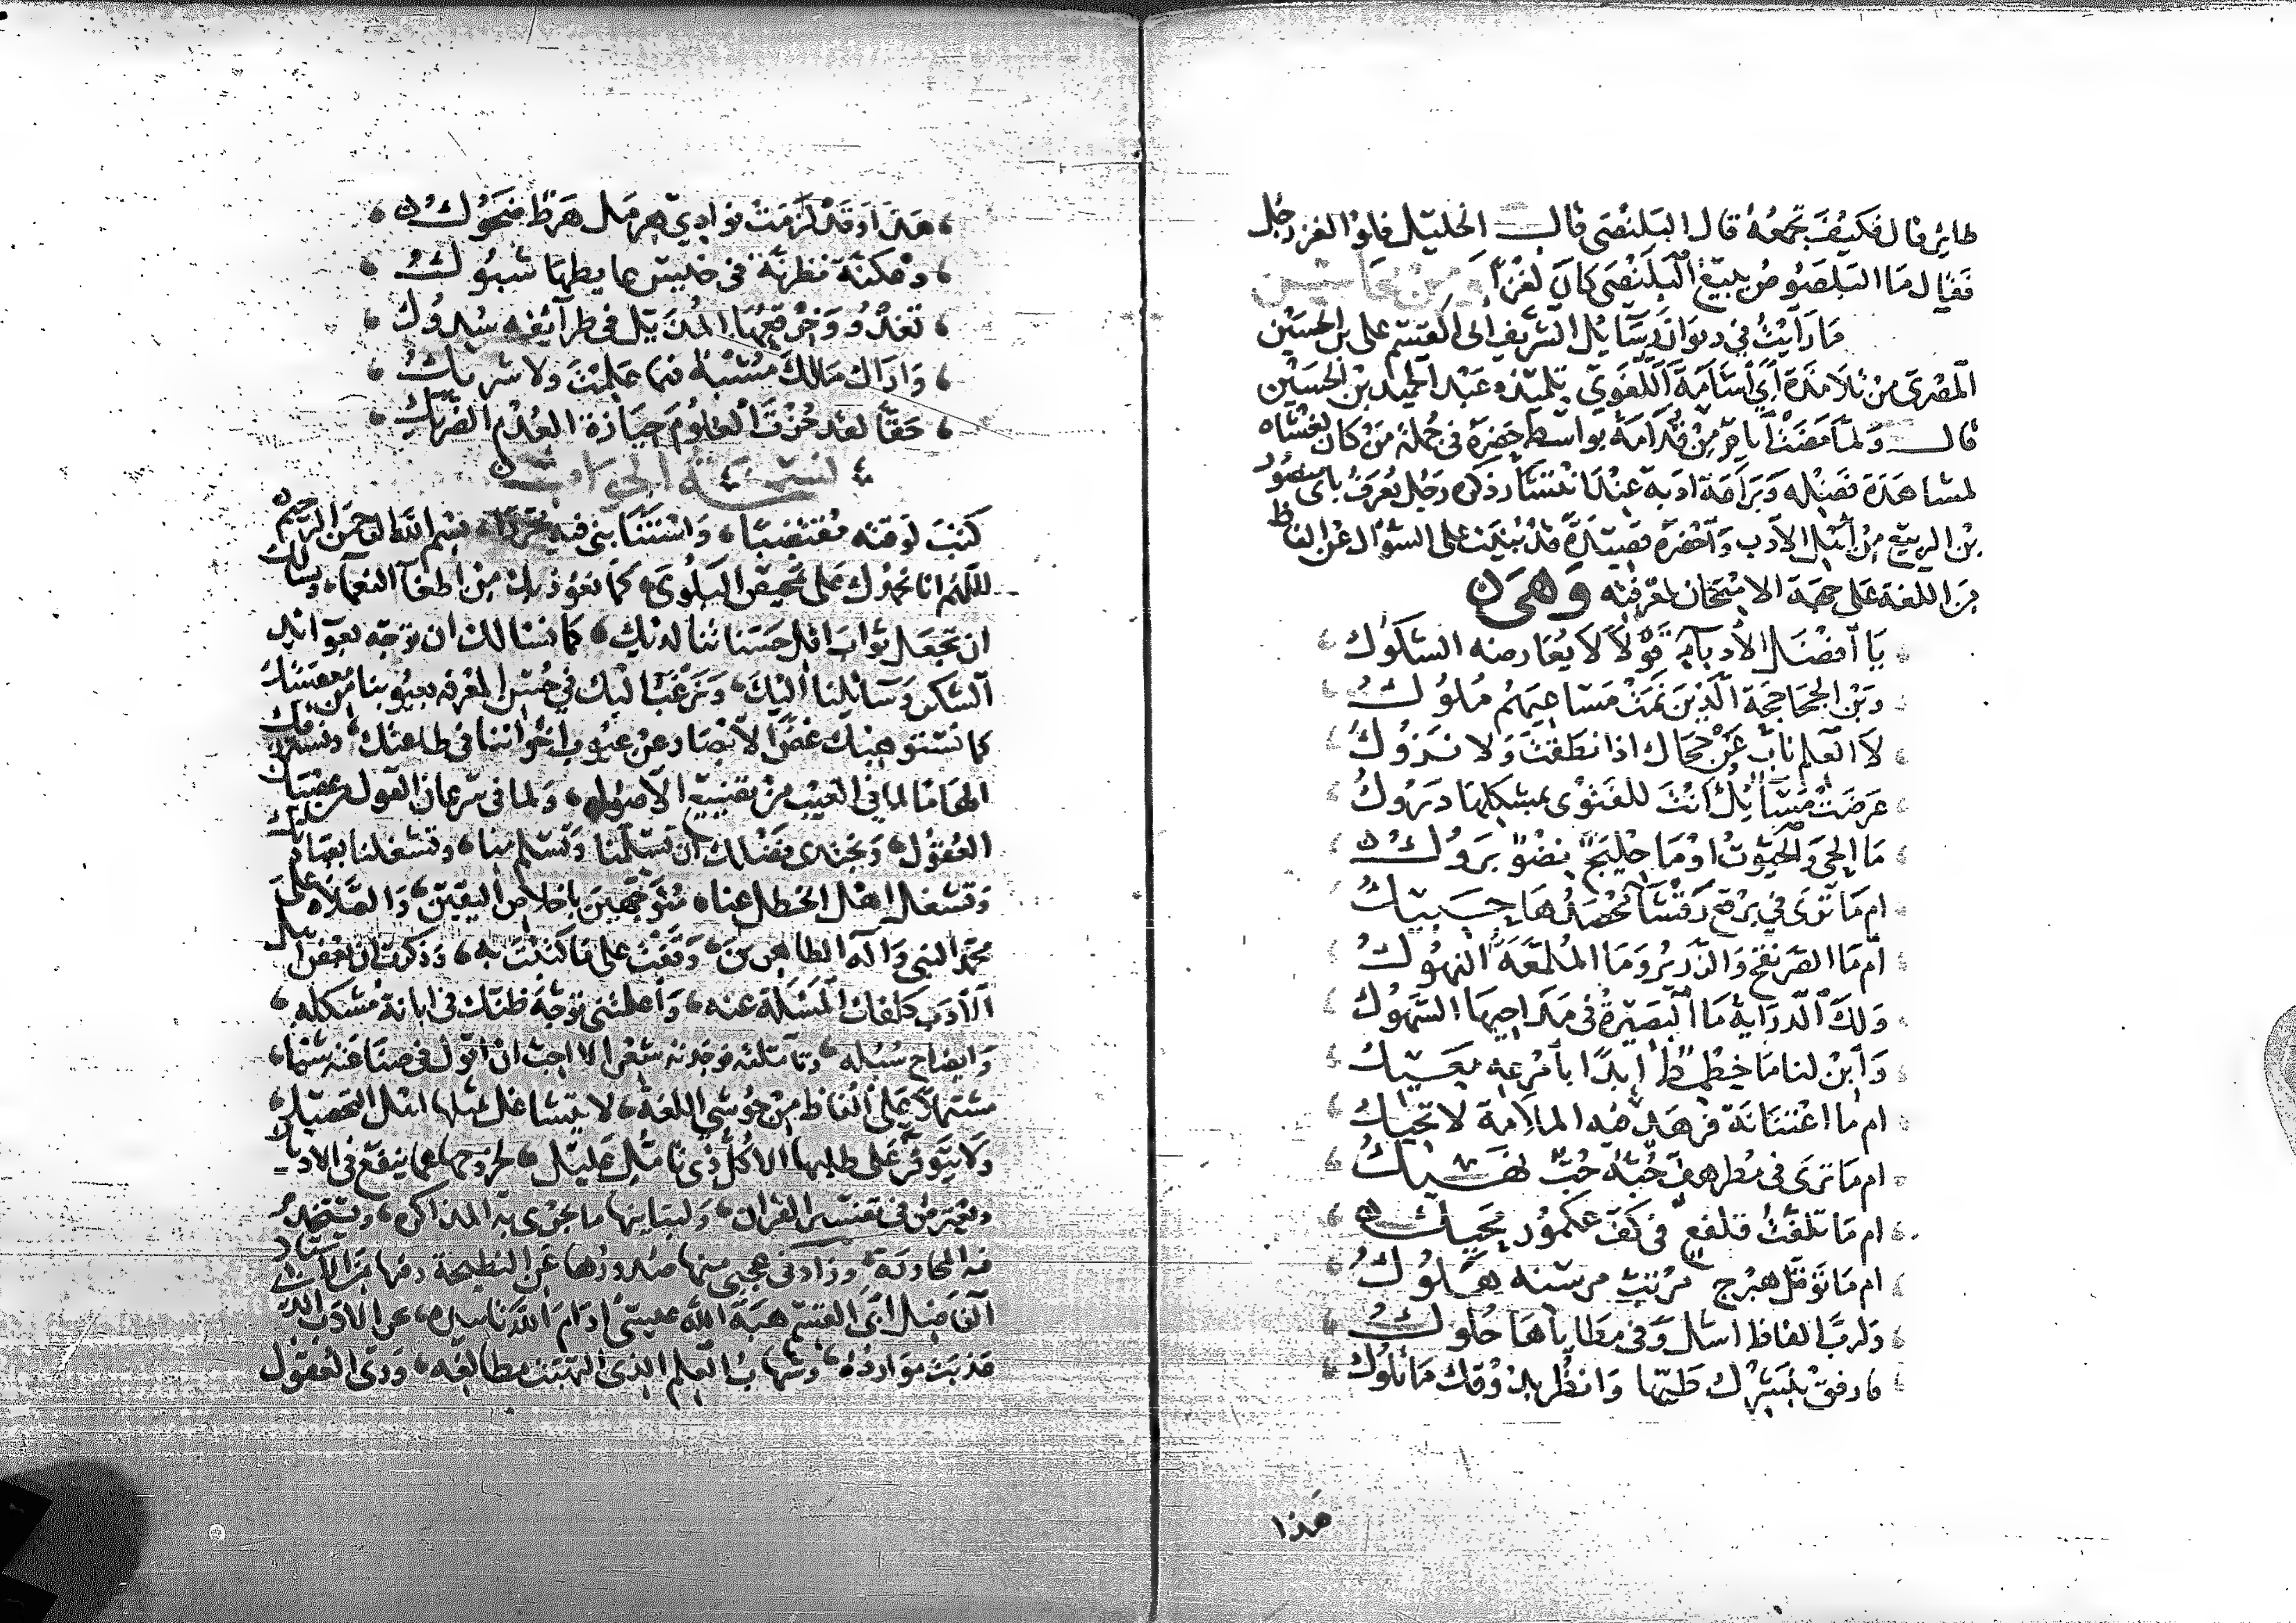 طائر قال فكيف تجمعه قال البلنصى قال الخليل فلو الغز رجل
فقال ما البلصوص يتبع البلنصى كان لغزا ومن محاسن
ما رأيت في ديوان رسائل الشريف ابى القسم على بن الحسين
المصرى من تلامذة ابي اسامة اللغوي تلميذه عبد الحميد بن الحسين
قال ولما مضت أيام من قدامه بواسط حضره في جملة من كان يغشاه
لمشاهدة فضله وبراعة ادبه عند انتشار ذكره رجل يعرف بابى منصور
بن الربيع من اهل الادب واحضره قصيدة قد بنيت على السؤال عن الفاظ
من اللغة على جهة الامتحان لمعرفته وهى
يا أفضل الأدباء قولا لا يعارضه الشكوك
وبن الجحاجحة الذين نمت مساعيهم ملوك
لا العلم ناب عن حجاك اذا نطقت ولا نزوك
عرضت مسائل انت للفتوى بمشكلها دروك
ما الحي والحيوت او ما جلبح نضو بروك
ام ما ترى في برقع رقشا محصدها حبيك
ام ما الصرنقح والزرير وما الملمعة النهوك
ولك الدراية ما البصيرة في مداحيها السهوك
وأبن لنا ما خطمط ابدا بأمرعه معيك
ام ما اغتنانة فرهد فيه الملامة لا تحيك
ام ما ترى فى مطرهف حبه حب نهيك
ام ما تلفت قلفع فى كف عكموز يحيك
ام ما توقل هبرج مرتب مرسنه هلوك
ولرب الفاظ اسل وفى مطاياها حلوك
فارفق بلبسك طيها وانظر بذوقك ما تلوك
هذا
هذا وقد لزمت نوادي هرمل هرط ضحوك
دعكنة نظرنة فى خليس عا يطها شبوك
تغدو وخرقعها المذيل في طرائفه سدوك
واراك مالك مشبه فيما علمت ولا شريك
حقا لقد حزت العلوم حيازة العدم الضريك
نسخة الجواب
كتب لوقته مقتضبا واستثنا بنى فيه محررا بسم الله الرحمن الرحيم
اللهم انا نحمدك على تمحيص البلوى كما نعوذ بك من اطغا النعما ونسالك
ان تجعل ثواب افل حسناتنا لديك كما نسالك ان توجه بعوائد
الشكر وسائلنا اليك ونرغب اليك في حسن المعرفة بعيوبنا من معصيتك
كما نستوهبك غض الابصار عن عيوب اخواننا فى طاعتك ونستر فك
الهامنا لما في الغيب من تضييع الاصول ولما فى سرعان القول من عصيان
العقول ونجتدى فضلك ان تسلمنا وتسلم منا وتشغلنا بعبادتك
وتشغل اهل الخطل عنا متوجهين باخلاص اليقين والصلاة على
محمد النبي واله الطاهرين وقفت على ما كتبت به وذكرت ان بعض اهل
الادب كلفك المسئلة عنه واعلمتنى توجه ظنك فى ابانة مشكله
وايضاح سبله وتأملته فوجدته شعرا لا احب ان اقول في صناعته شيئا
مشتملا على الفاظ من حوشي اللغة لا يتشاغل بمثلها اهل التحصيل
ولا يتوفر على طلبها الا كل ذى تامل عليل لخروجها عما ينفع فى الاديان
ويعترض فى تفسير القران ولمباينتها ما يجرى به المذاكرة ويستخدم
فيه المحاورة وزادني عجبا منها صدورها عن البطيحة وفيها من الاستاذ
الفاضل ابى القسم هبة الله عيسى ادام الله تاييده عن الادب الذ
قد نبت موارده وشهاب العلم الذى التهبت مطالعه وروى العقول